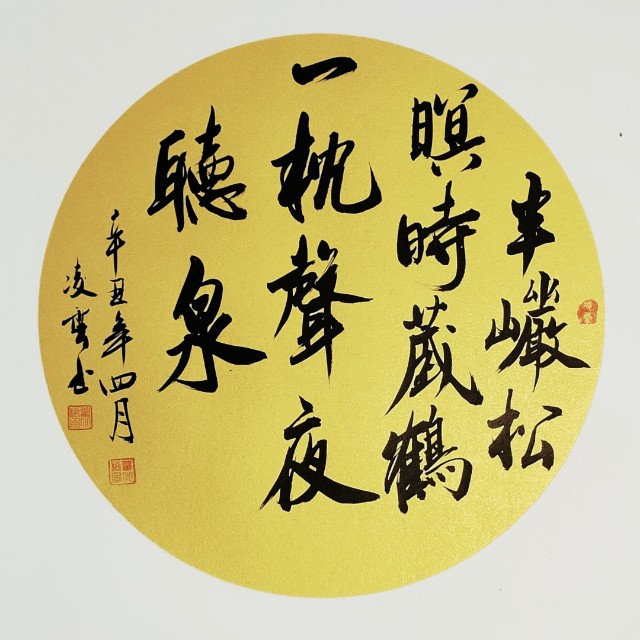 半巖松
暝時藏鶴
一枕聲夜
聽泉
辛丑年四月
凌雲书